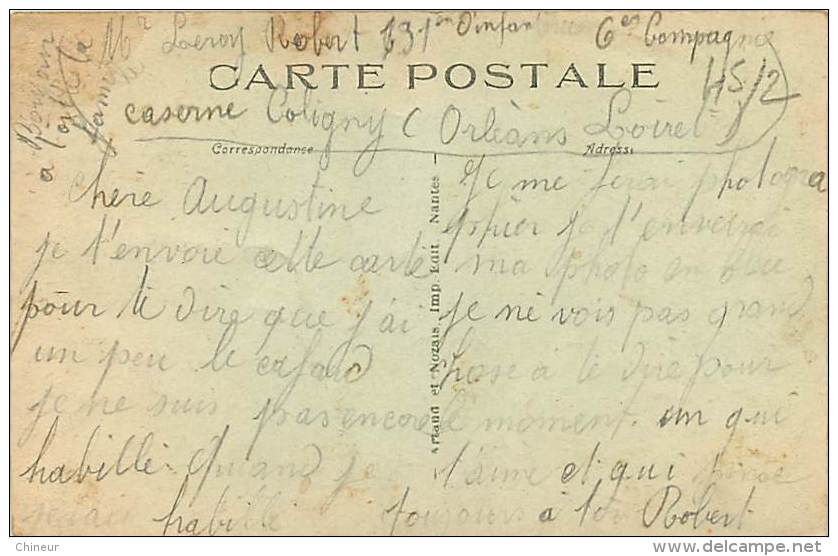 Mr Leroy Robert 131em d'infanterie 6em Compagnie
Bonjour
à toute la
famille
CARTE POSTALE
45/2
caserne Coligny (Orléans Loiret)
Correspondance
Adresse
chère Augustine
je t'envoie cette carte
pour te dire que j'ai
un peu le cafard
je ne suis pas encore
habillé. Quand je
serai habillé
Artaud et Nozais, Imp. Edit. Nantes
Je me ferai photogra
phier je t'enverai
ma photo en bleu
je ne vois pas grand
chose à te dire pour
le moment. un qui
t'aime et qui pense
toujours à toi Robert
Chineur
delcampe.net